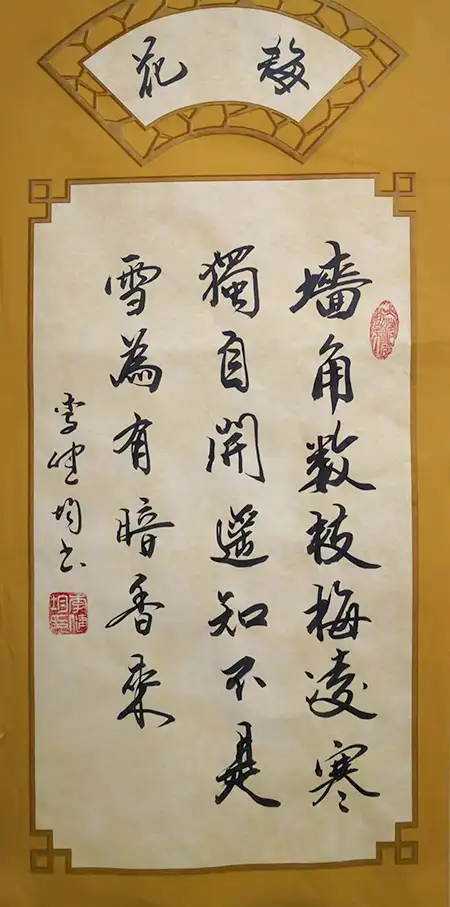 花
墻角数枝梅凌寒
獨自開遥知不是
雪為有暗香來
李健均书